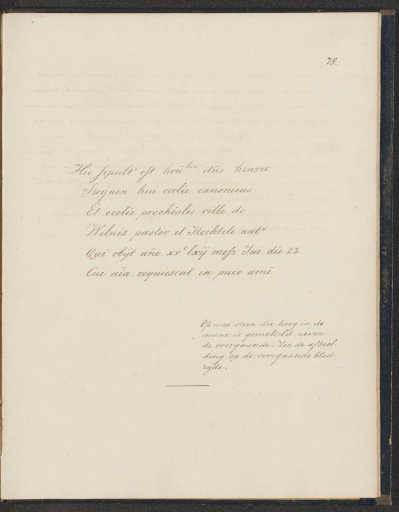 78.
Hic sepult est hon͞lis dn͞s henric
Swynen huc ecclie canonicus
Et ecclie prochialis ville de
Wilnis pastor et Hechtels nat
Qui obijt año xvᶜ lxij mesz Jai die 23
Cuc aia requiescat in pace amē
Op een steen die hoog in de
muur is gemetseld neven
de voorgaande. Zie de afbeel
ding op de voorgaande blad-
zijde.